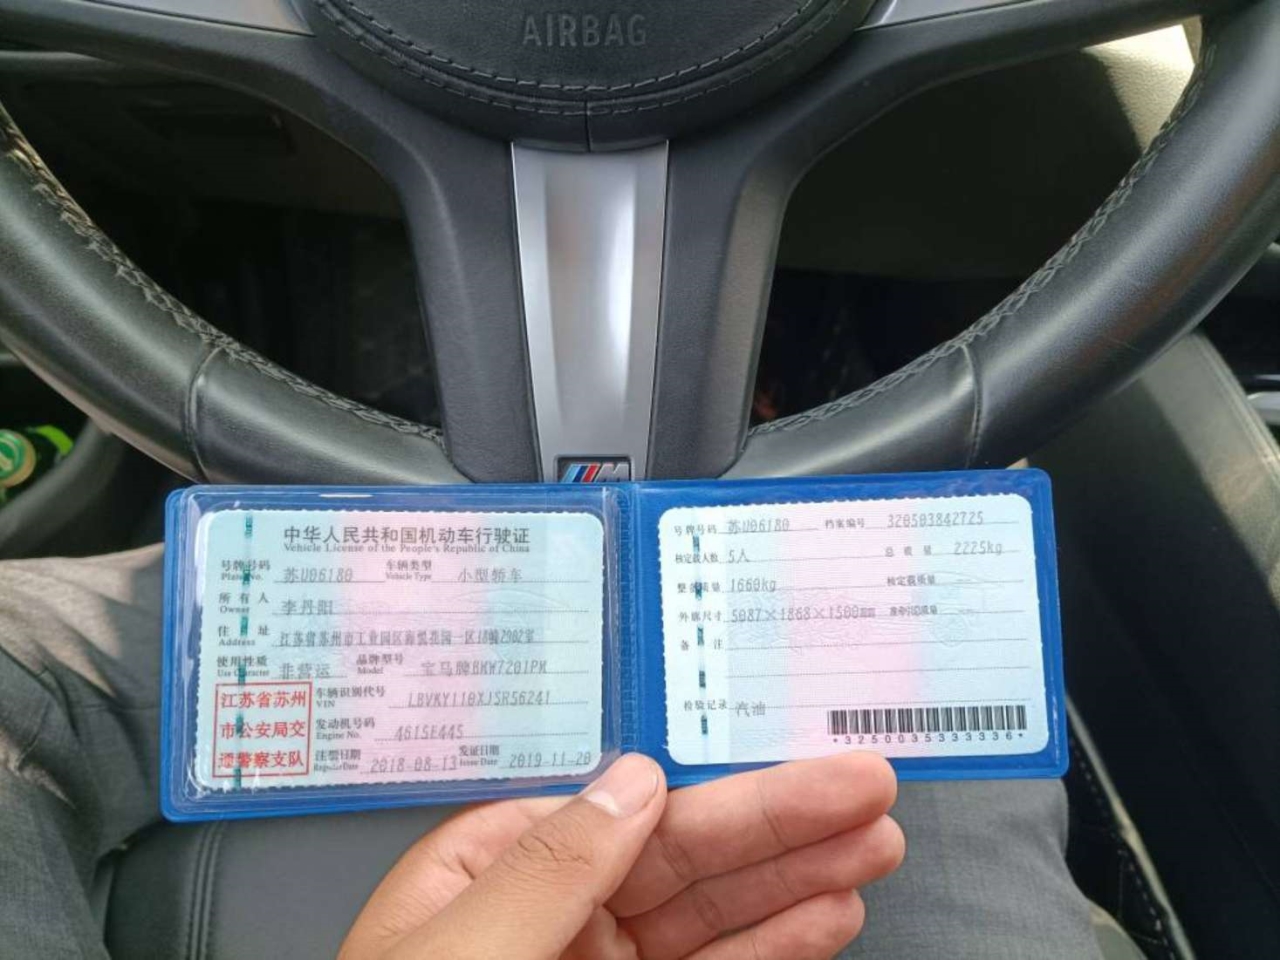 AIRBAG
M
中华人民共和国机动车行驶证
Vehicle License of the People's Republic of China
号牌号码 苏U06180 车辆类型 小型轿车
Plate No. Vehicle Type
所有人 李丹阳
Owner
住址 江苏省苏州市工业园区
Address
使用性质 非营运 品牌型号 宝马牌BMW7201PM
Use Character Model
江苏省苏州
市公安局交
通警察支队
车辆识别代号 LBVKY110XJSR56241
VIN
发动机号码 4615E445
Engine No.
注册日期 2018-08-13 发证日期 2019-11-20
Register Date Issue Date
号牌号码 苏U06180 档案编号 320503842725
核定载人数 5人 总质量 2225kg
整备质量 1660kg 核定载质量
外廓尺寸 5087×1868×1500mm 准牵引总质量
备注
检验记录 汽油
*3250035333336*